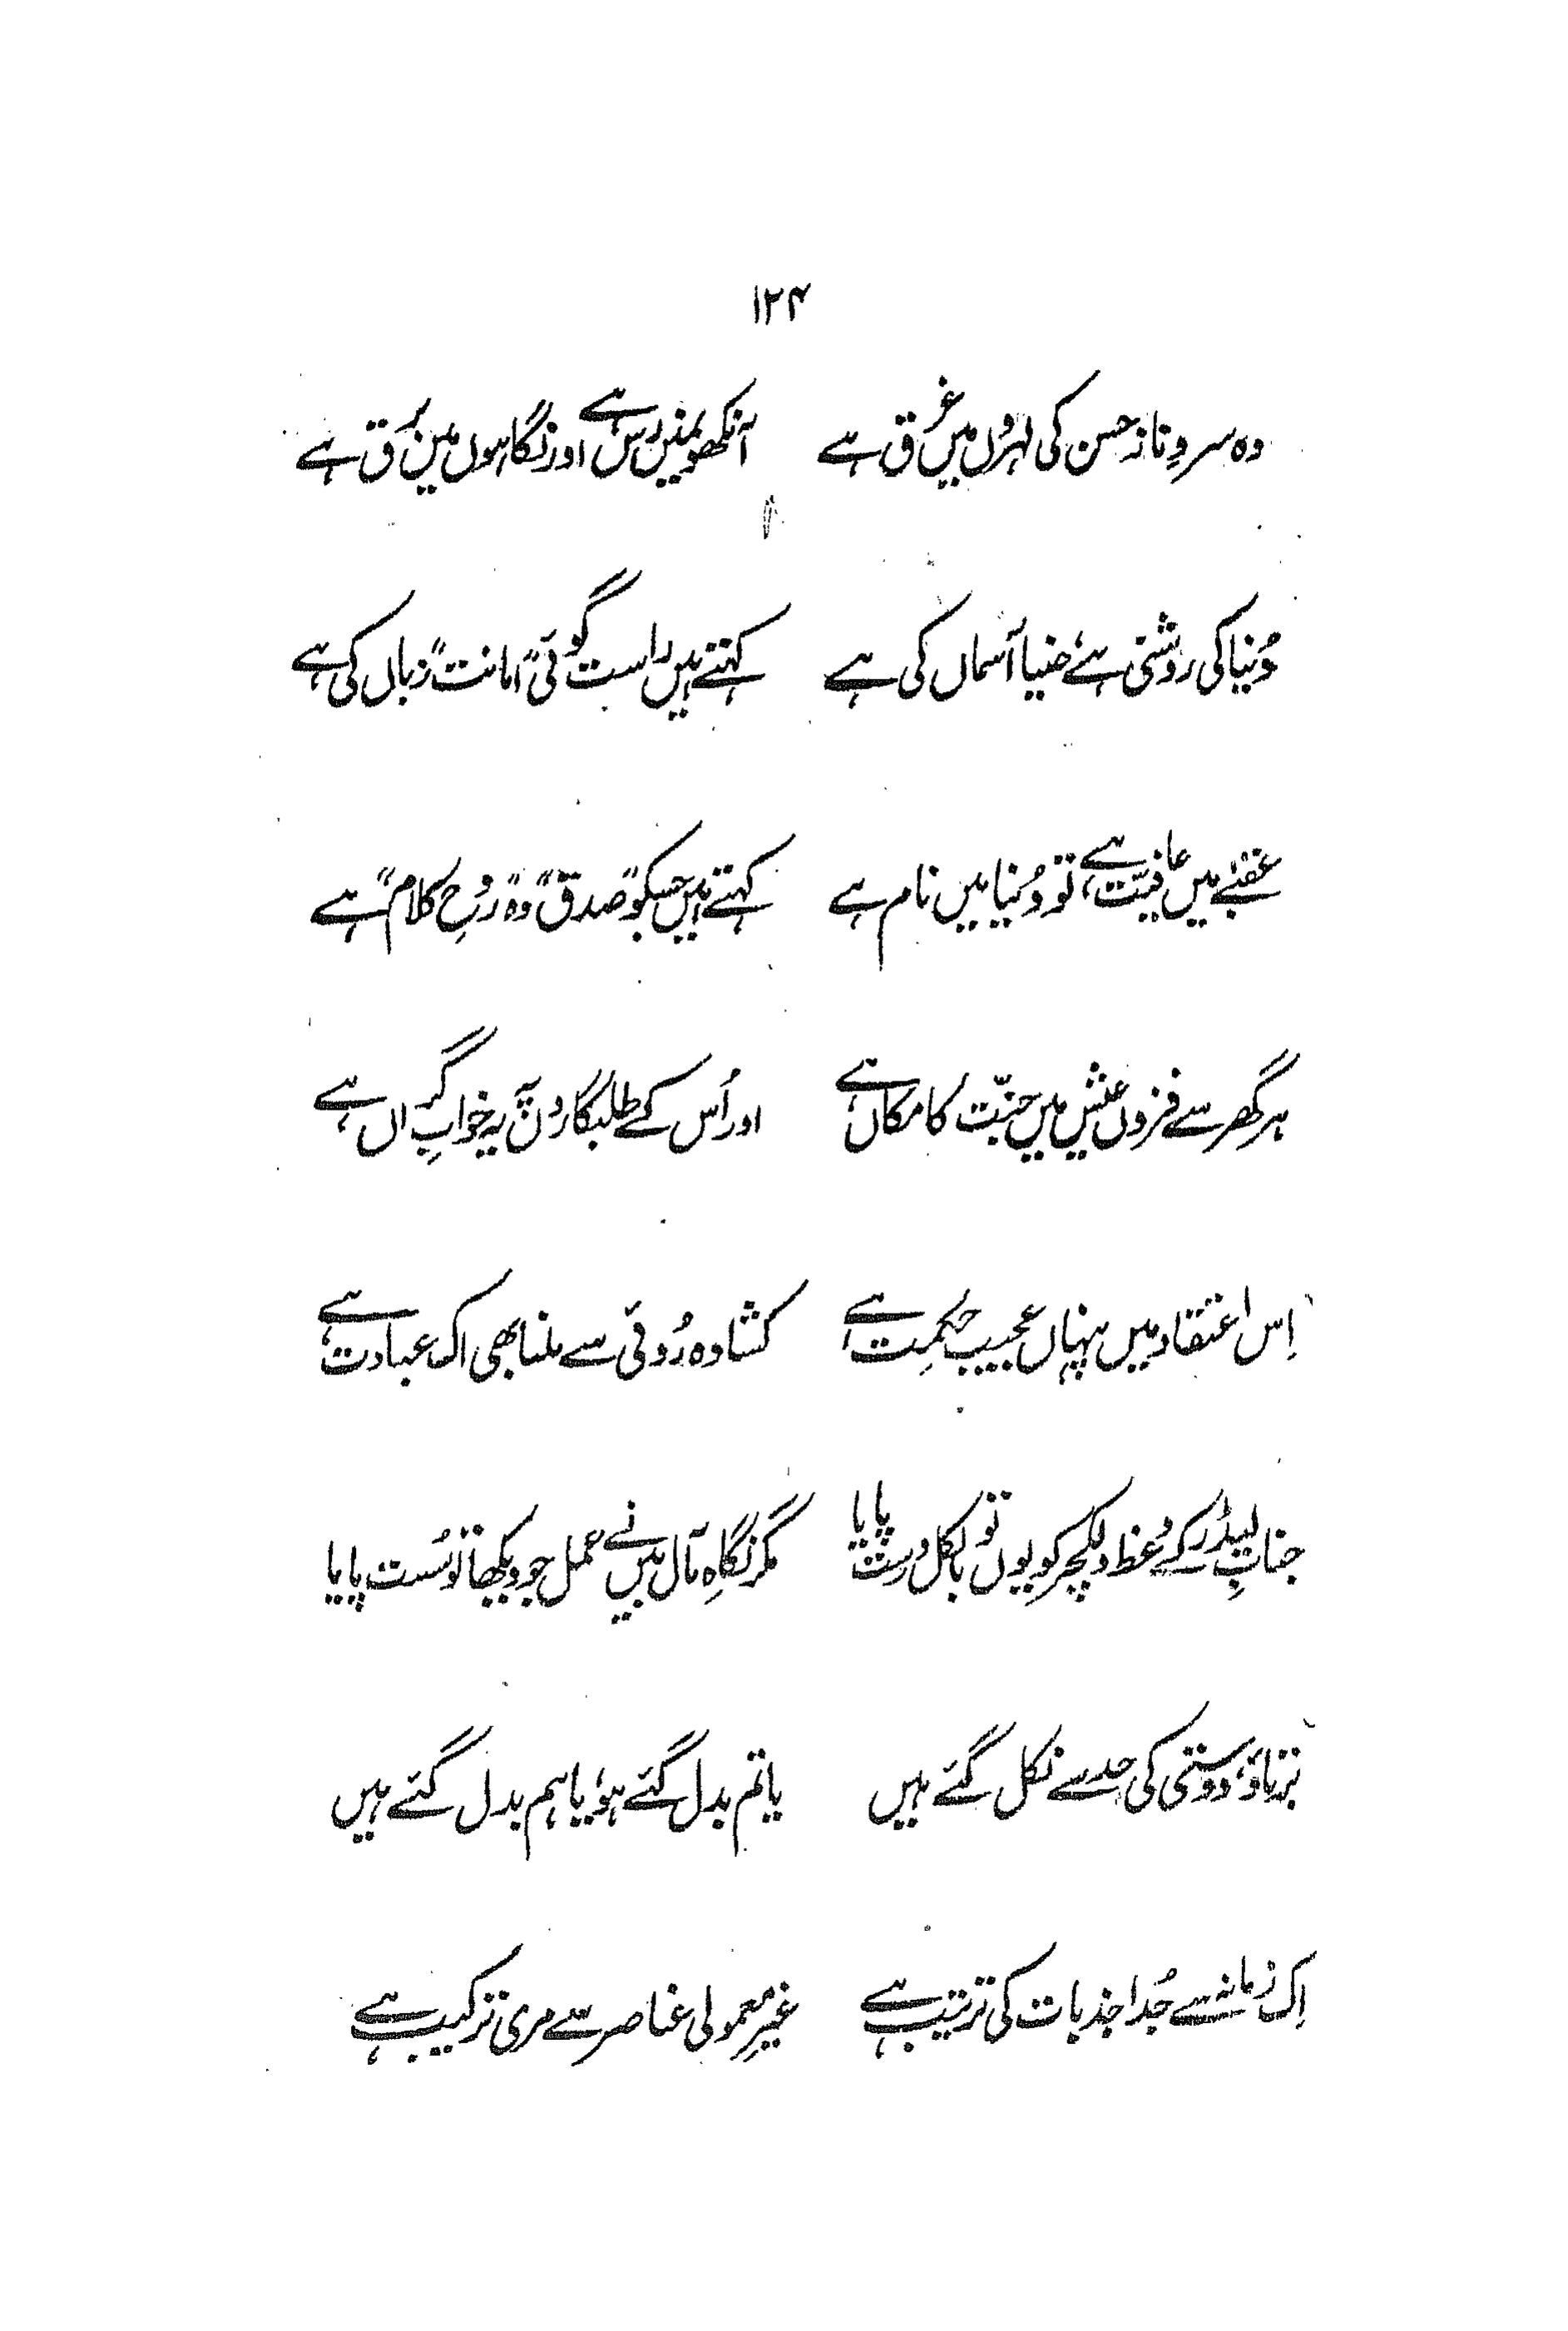 ۱۲۴
وہ سروِ ناز حسن کی لہروں میں غرق ہے آنکھونمیں رس ہے اور نگاہوں میں برق ہے
دُنیا کی روشنی ہے، ضیا آسماں کی ہے کہتے ہیں راست گوئی "امانت" زباں کی ہے
عقبےٰ میں عافیّت ہے، تو دُنیا میں نام ہے کہتے ہیں جسکو "صدق" وہ "رُوحِ کلام" ہے
ہر گھر سے فزوں عیش میں جنّت کا مکاں ہے اور اُس کے طلبگاروں پہ یہ خوابِ گراں ہے
اِس اعتقاد میں پنہاں عجیب حکمت ہے کشادہ رُوئی سے ملنا بھی اک عبادت ہے
جنابِ لیڈر کے وُعظ و لکچر کو یوں تو بالکل درست پایا مگر نگاہِ مآل بیں نے عمل جو دیکھا تو سُست پایا
برتاؤ، دوستی کی حد سے نکل گئے ہیں یا تم بدل گئے ہو، یا ہم بدل گئے ہیں
اِک زمانے سے جُدا جذبات کی ترتیب ہے غیر معمولی عناصر سے مری ترکیب ہے